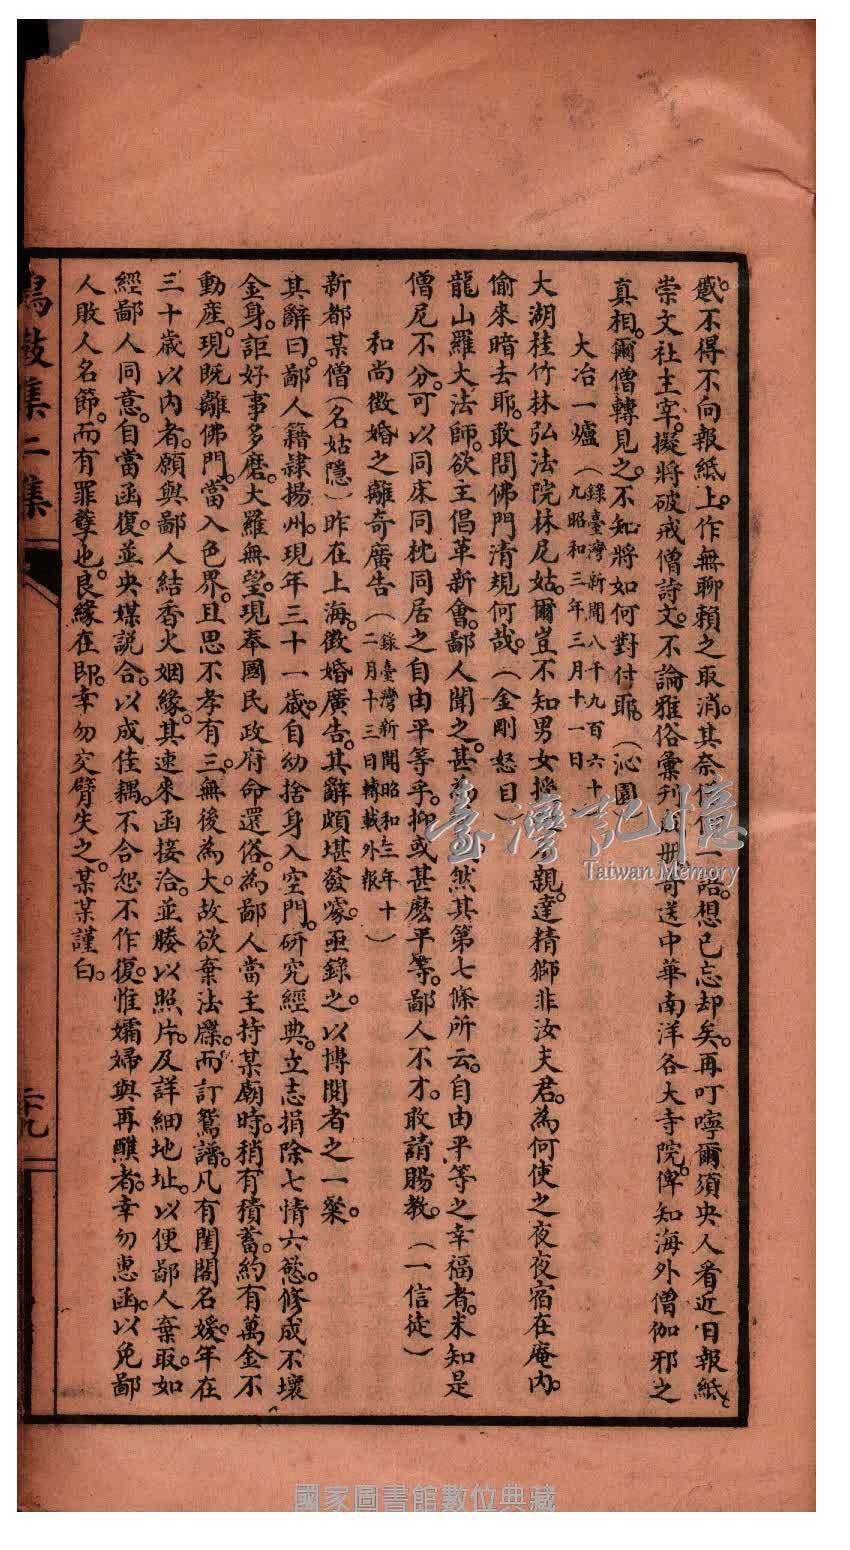 慼。不得不向報紙上。作無聊賴之取消。其奈一語。想已忘却矣。再叮嚀爾須央人看近日報紙。
崇文社主宰。擬將破戒僧詩文。不論雅俗彙刊寄送中華南洋各大寺院。俾知海外僧伽邪之
真相。爾僧轉見之。不知將如何對付耶。(沁園)
大冶一爐(錄臺灣新聞八千九百六十九昭和三年三月十一日)
大湖桂竹林弘法院林尼姑。爾豈不知男女授不親。達精獅非汝夫君。為何使之夜夜宿在庵內。
偷來暗去耶。敢問佛門清規何哉。(金剛怒目)
龍山羅大法師。欲主倡革新會。鄙人聞之。甚為然其第七條所云。自由平等之幸福者。未知是
僧尼不分。可以同床同枕同居之自由平等乎。抑或甚麼平等。鄙人不才。敢請賜教。(一信徒)
和尚徵婚之離奇廣告(錄臺灣新聞昭和三年十二月十三日轉載外報)
新都某僧(名姑隱)昨在上海。徵婚廣告。其辭頗堪發噱。亟錄之。以博閱者之一粲。
其辭曰。鄙人籍隸揚州。現年三十一歲。自幼捨身入空門。研究經典。立志捐除七情六慾。修成不壞
金身。詎好事多磨。大羅無望。現奉國民政府命還俗。為鄙人當主持某廟時。稍有積蓄。約有萬金不
動產。現既離佛門。當入色界。且思不孝有三。無後為大。故欲棄法牒。而訂鴛譜。凡有閨閣名媛。年在
三十歲以內者。願與鄙人結香火姻緣。其速來函接洽。並媵以照片。及詳細地址。以便鄙人棄取。如
經鄙人同意。自當函復。並央媒說合。以成佳耦。不合恕不作復。惟孀婦與再醮者。幸勿惠函。以免鄙
人敗人名節。而有罪孽也。良緣在即。幸勿交臂失之。某某謹白。
鳴鼓集二集
二十九
臺灣記憶
Taiwan Memory
國家圖書館數位典藏